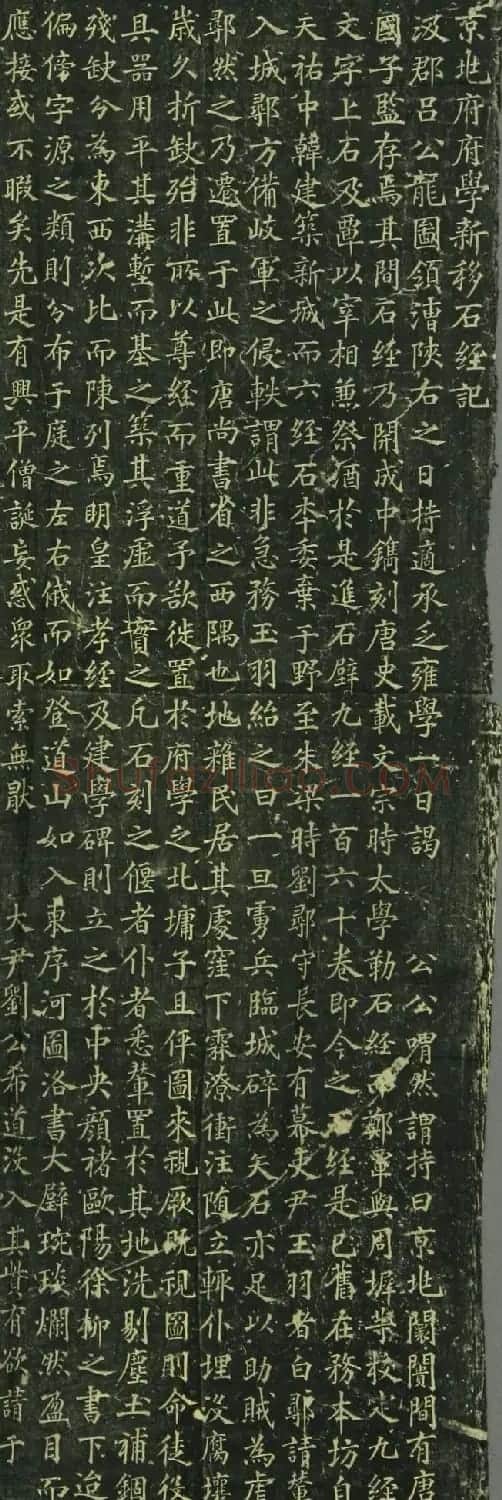 京兆府府學新移石經記
汲郡呂公龍圖領漕陝右之日持適承乏雍學一日謁 公公喟然謂持曰京兆闤闠間有唐
國子監存焉其間石經乃開成中鐫刻唐史載文宗時太學勒石經 鄭覃與周墀等校定九經
文字上石及覃以宰相兼祭酒於是進石壁九經一百六十卷即今之石經是已舊在務本坊自
天祐中韓建築新城而六經石本委棄于野至朱梁時劉鄩守長安有幕吏尹玉羽者白鄩請輦
入城鄩方備岐軍之侵軼謂此非急務玉羽紿之曰一旦虜兵臨城碎為矢石亦足以助賊為虐
鄩然之乃遷置于此即唐尚書省之西隅也地雜民居其處窪下霖潦衝注随立輙仆埋沒腐壞
歲久折缺殆非所以尊經而重道予欲徙置於府學之北墉子且伻圖來視厥既視圖則命徒役
具器用平其溝塹而基之築其浮虛而實之凡石刻之偃者仆者悉輦置於其地洗剔塵土補錮
殘缺分為東西次比而陳列焉明皇注孝經及建學碑則立之於中央顏褚歐陽徐柳之書下迨
偏傍字源之類則分布于庭之左右俄而如登道山如入東序河圖洛書大璧琬琰爛然盈目而
應接或不暇矣先是有興平僧誕妄惑衆取索無猒 大尹劉公希道沒入其貲有欲請于
Shufaziliao.com